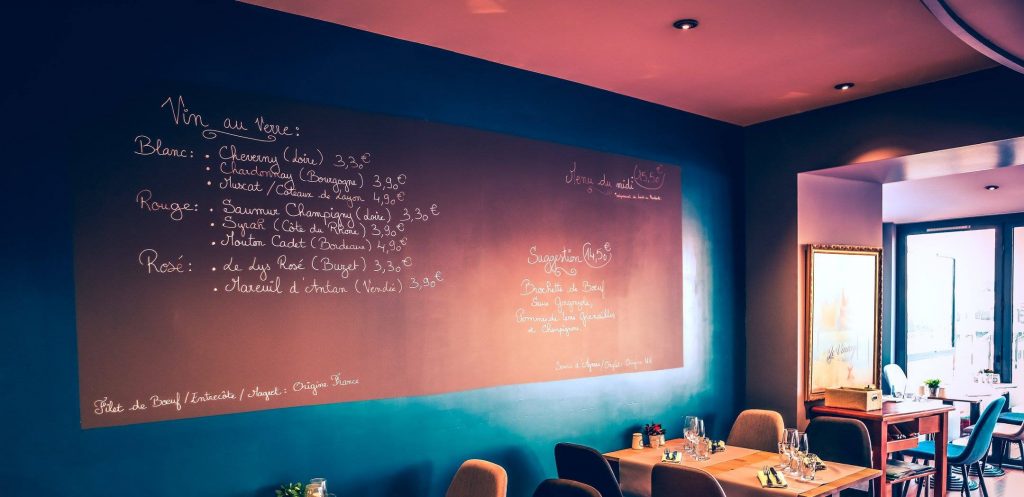 Vin au Verre:
Blanc: • Cheverny (Loire) 3,30€
• Chardonnay (Bourgogne) 3,90€
• Muscat / Coteaux de Layon 4,90€
Rouge: • Saumur Champigny (Loire) 3,30€
• Syrah (Côte du Rhône) 3,90€
• Mouton Cadet (Bordeaux) 4,90€
Rosé: • Le Lys Rosé (Buzet) 3,30€
• Mareuil d'Antan (Vendée) 3,90€
Filet de Bœuf / Entrecôte / Magret: Origine France
Menu du midi 15,50€
Suggestion 14,50€
Brochette de Bœuf
Sauce
Pomme de Terre Grenailles
et Champignons
Origine